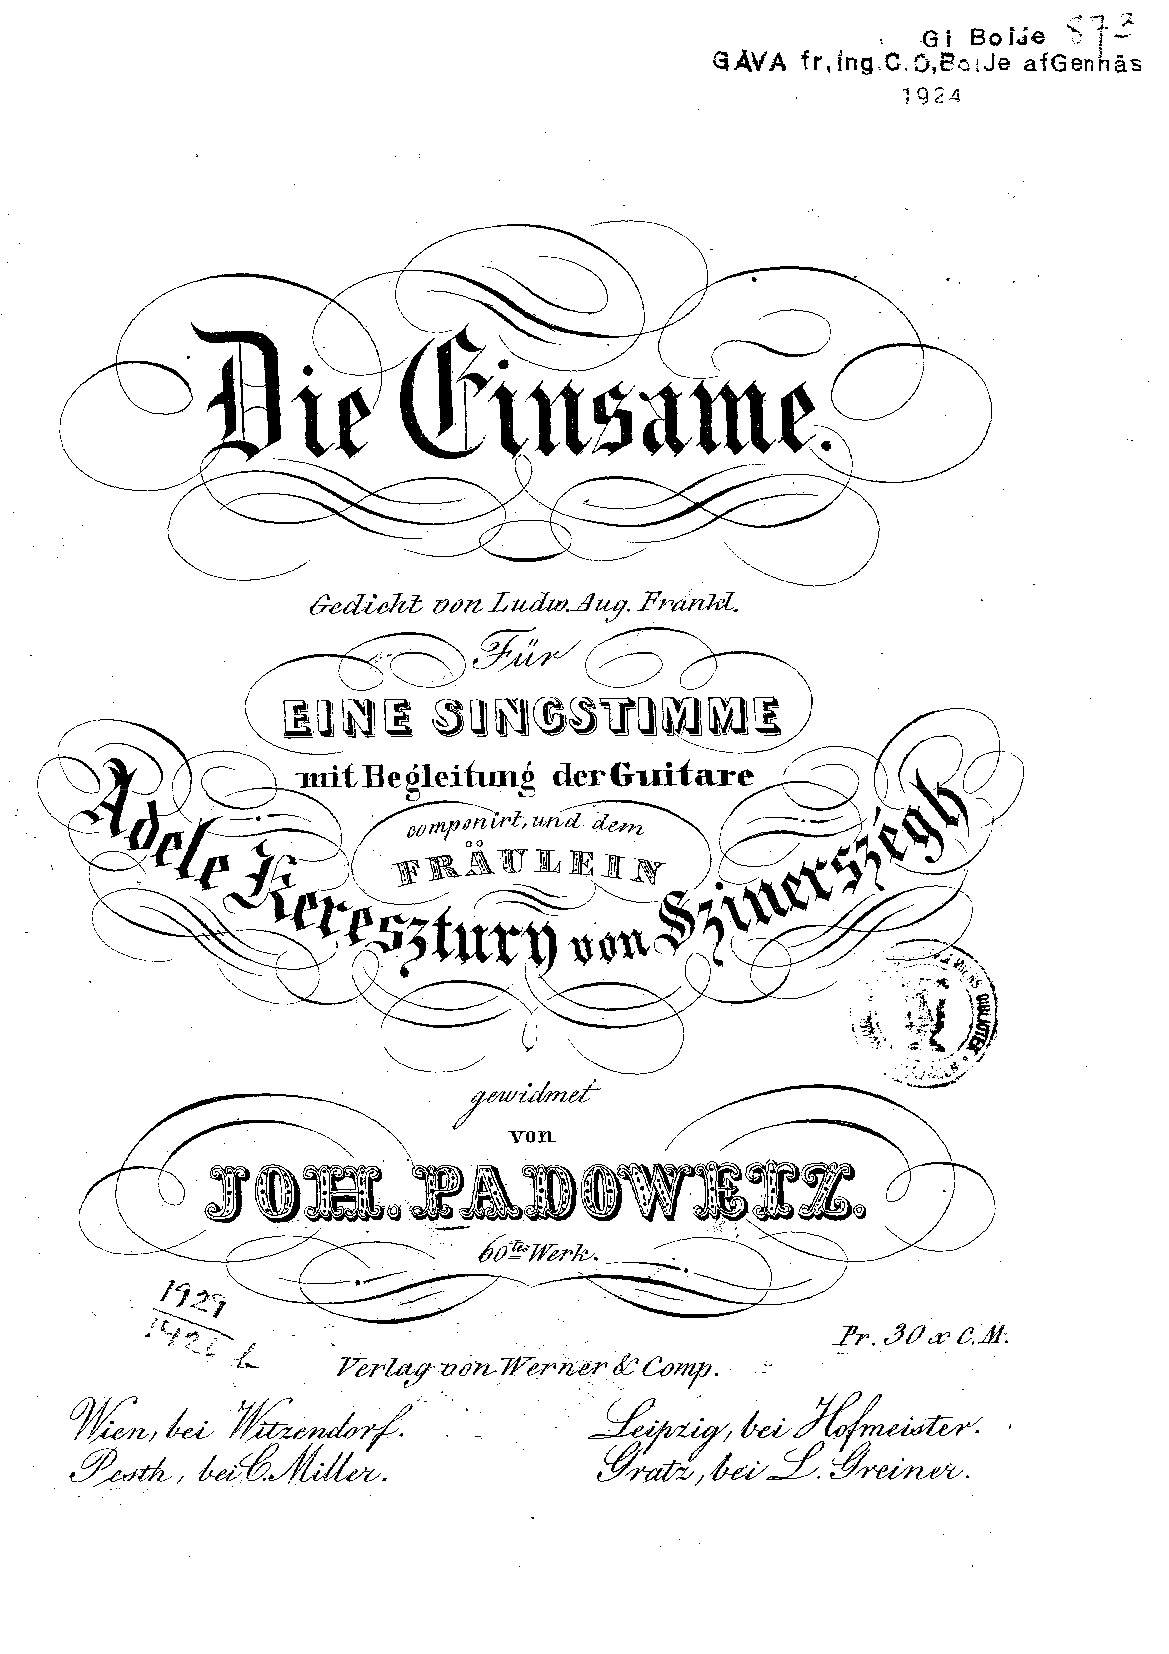 Gi Boije 873
GÅVA fr, ing. C. O, BoiJe afGennäs
1924
Die Einsame.
Gedicht von Ludw. Aug. Frankl.
Für
EINE SINGSTIMME
mit Begleitung der Guitare
componirt, und dem
FRÄULEIN
Adele Keresztury von Szinerszégh
BIBLIOTEK
gewidmet
von
JOH. PADOWETZ.
60tes Werk.
1929
Pr. 30 x C.M.
Verlag von Werner & Comp.
Wien, bei Witzendorf.
Leipzig, bei Hofmeister.
Pesth, bei C. Miller.
Gratz, bei L. Greiner.